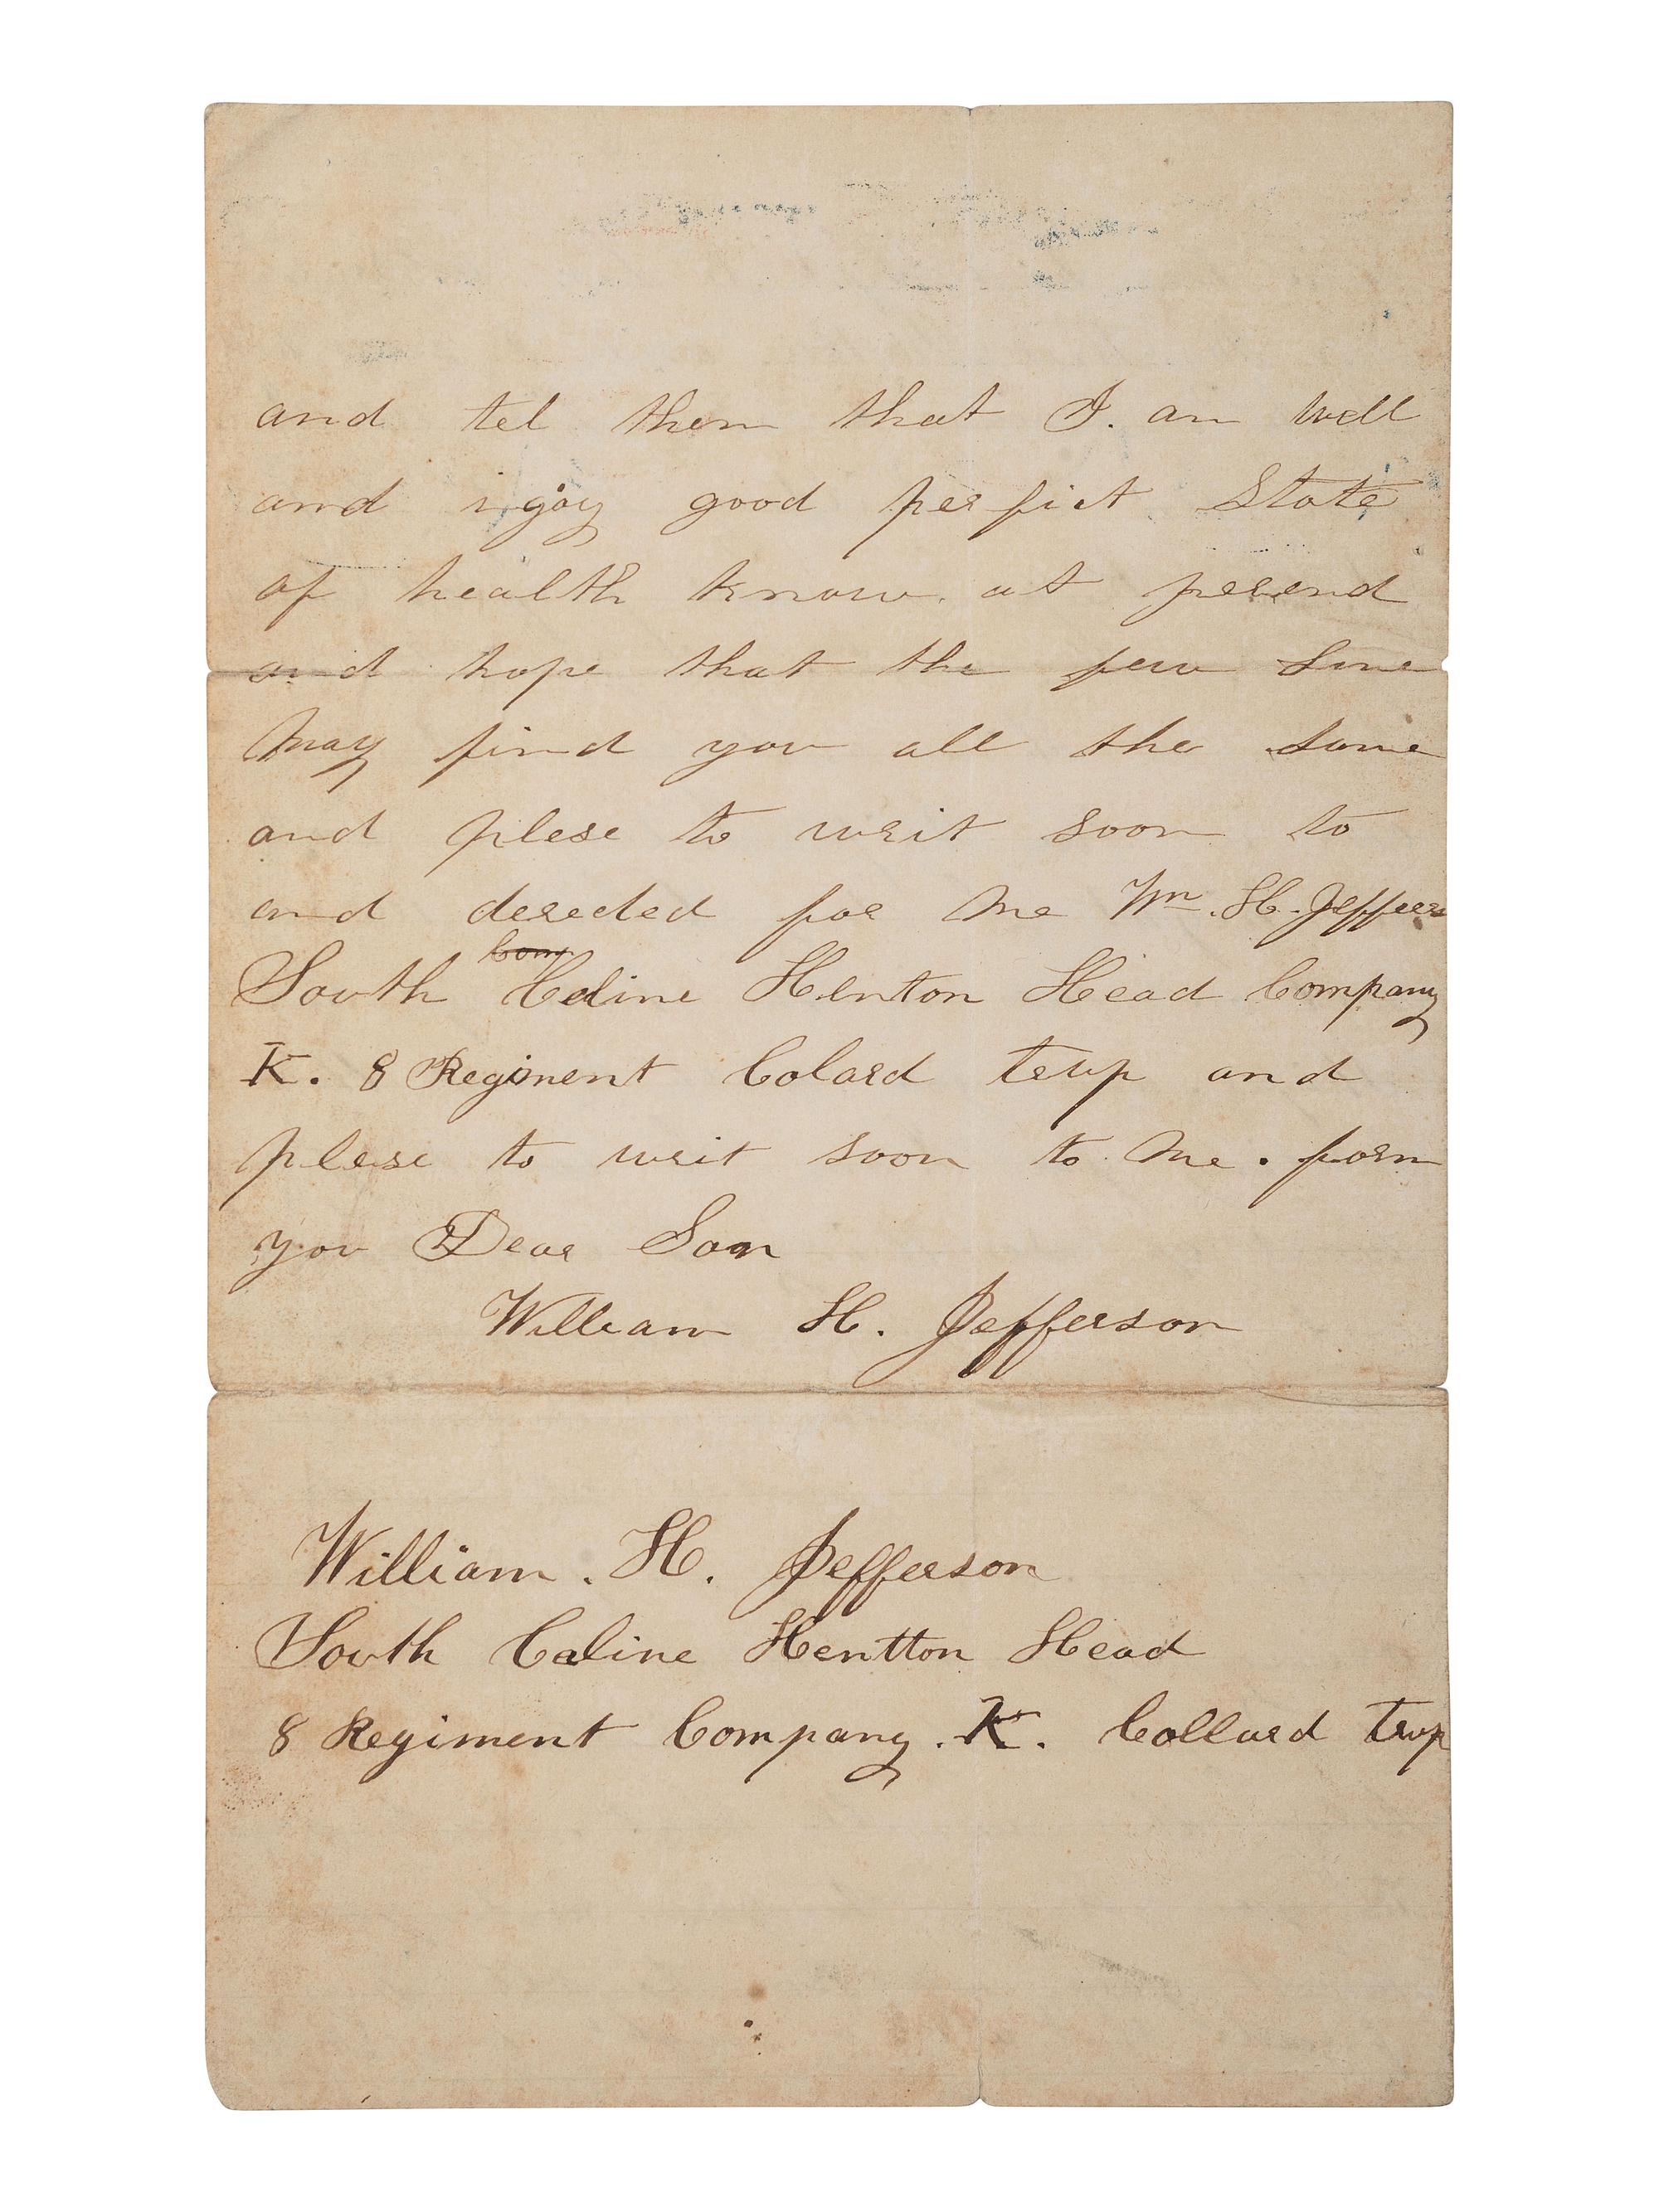 and tel them that I. am well
and injoy good perfict State
of health know at perend
and hope that the few line
May find you all the same
and plese to writ soon to
and dereded for me Wm. H. Jeffers
Com
South Caline Henton Head Company
K. 8 Regiment Colard trup and
plese to writ soon to me. form
you Dear Son
William H. Jefferson
William. H. Jefferson
South Caline Hentton Head
8 Regiment Company. K. Collard trup